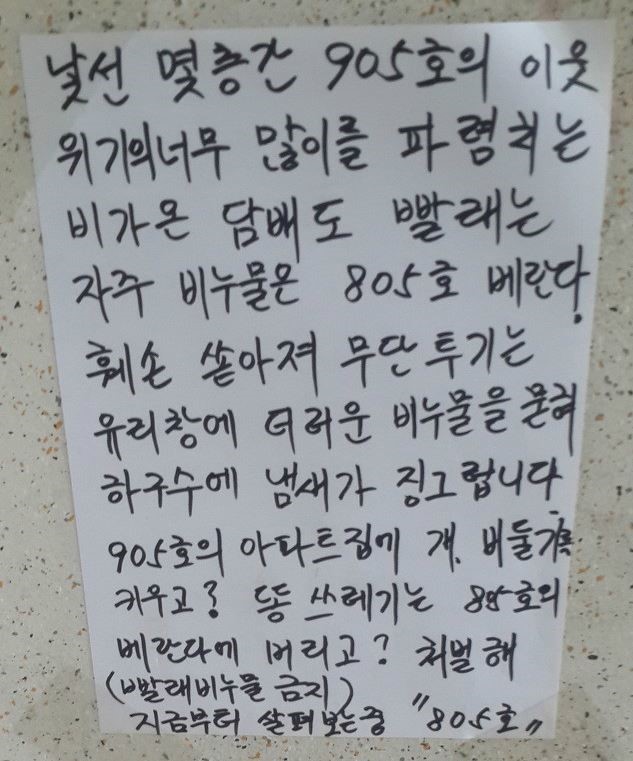 낯선 몇층간 905호의 이웃
위기의너무 많이를 파렴치는
비가온 담배도 빨래는
자주 비누물온 805호 베란다.
훼손 쏟아져 무단투기는
유리창에 더러운 비누물을 묻혀
하구수에 냄새가 징그럽니다
905호의 아파트집에 개. 비둘기
키우고? 똥 쓰레기는 805호의
베란다에 버리고? 처벌해
(빨래비누물 금지)
지금부터 살펴보는중 "805호"